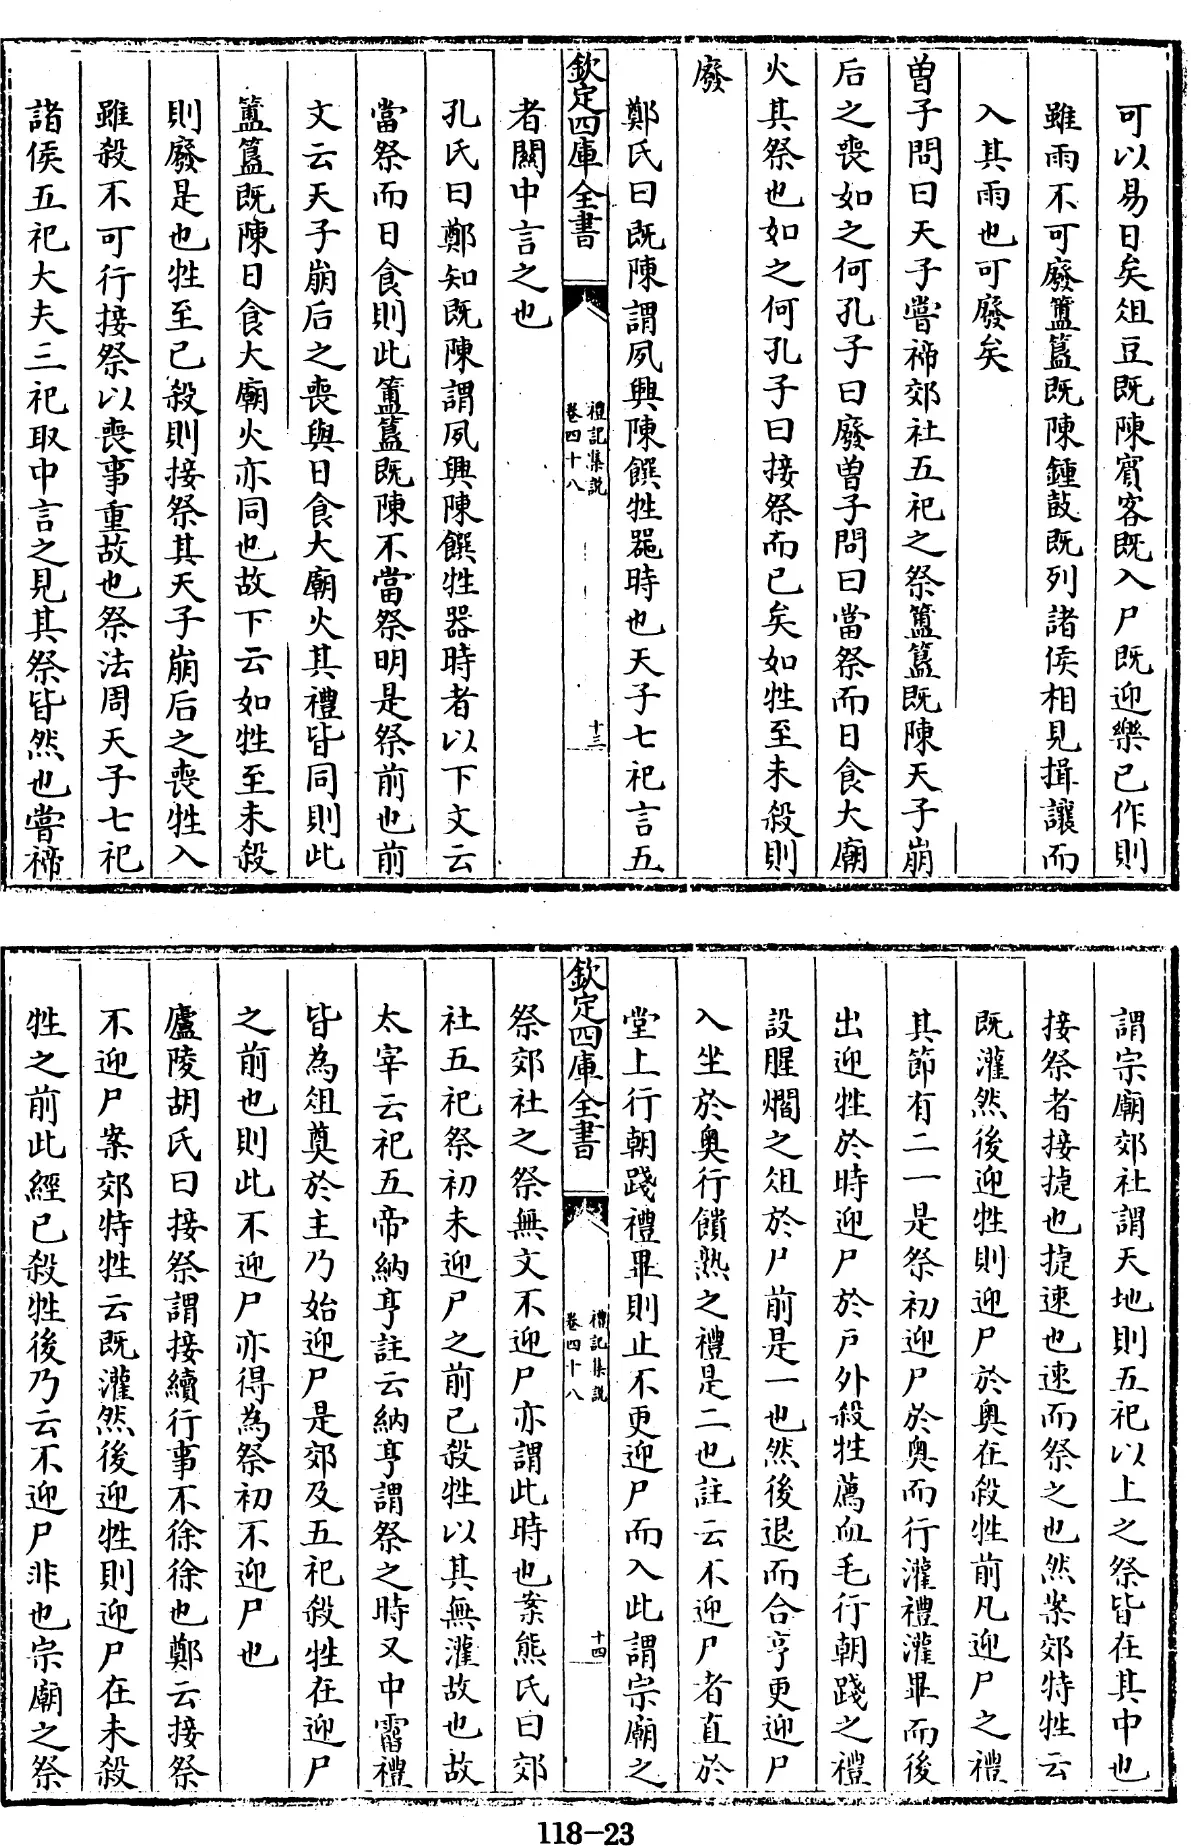 可以易日矣俎豆既陳賓客既入尸既迎樂已作則
雖雨不可廢簠簋既陳鍾鼓既列諸侯相見揖讓而
入其雨也可廢矣
曽子問曰天子嘗禘郊社五祀之祭簠簋既陳天子崩
后之喪如之何孔子曰廢曽子問曰當祭而日食大廟
火其祭也如之何孔子曰接祭而已矣如牲至未殺則
廢
鄭氏曰既陳謂夙興陳饌牲噐時也天子七祀言五
欽定四庫全書
禮記集説
卷四十八
十三
者闗中言之也
孔氏曰鄭知既陳謂夙興陳饌牲器時者以下文云
當祭而日食則此簠簋既陳不當祭明是祭前也前
文云天子崩后之喪與日食大廟火其禮皆同則此
簠簋既陳日食大廟火亦同也故下云如牲至未殺
則廢是也牲至已殺則接祭其天子崩后之喪牲入
雖殺不可行接祭以喪事重故也祭法周天子七祀
諸侯五祀大夫三祀取中言之見其祭皆然也嘗禘
謂宗廟郊社謂天地則五祀以上之祭皆在其中也
接祭者接捷也捷速也速而祭之也然案郊特牲云
既灌然後迎牲則迎尸於奥在殺牲前凡迎尸之禮
其節有二一是祭初迎尸於奥而行灌禮灌畢而後
出迎牲於時迎尸於戸外殺牲薦血毛行朝踐之禮
設腥爓之俎於尸前是一也然後退而合亨更迎尸
入坐於奥行饋熟之禮是二也註云不迎尸者直於
堂上行朝踐禮畢則止不更迎尸而入此謂宗廟之
欽定四庫全書
禮記集説
卷四十八
十四
祭郊社之祭無文不迎尸亦謂此時也案熊氏曰郊
社五祀祭初未迎尸之前已殺牲以其無灌故也故
太宰云祀五帝納亨註云納亨謂祭之時又中霤禮
皆為俎奠於主乃始迎尸是郊及五祀殺牲在迎尸
之前也則此不迎尸亦得為祭初不迎尸也
廬陵胡氏曰接祭謂接續行事不徐徐也鄭云接祭
不迎尸案郊特牲云既灌然後迎牲則迎尸在未殺
牲之前此經已殺牲後乃云不迎尸非也宗廟之祭
118-23